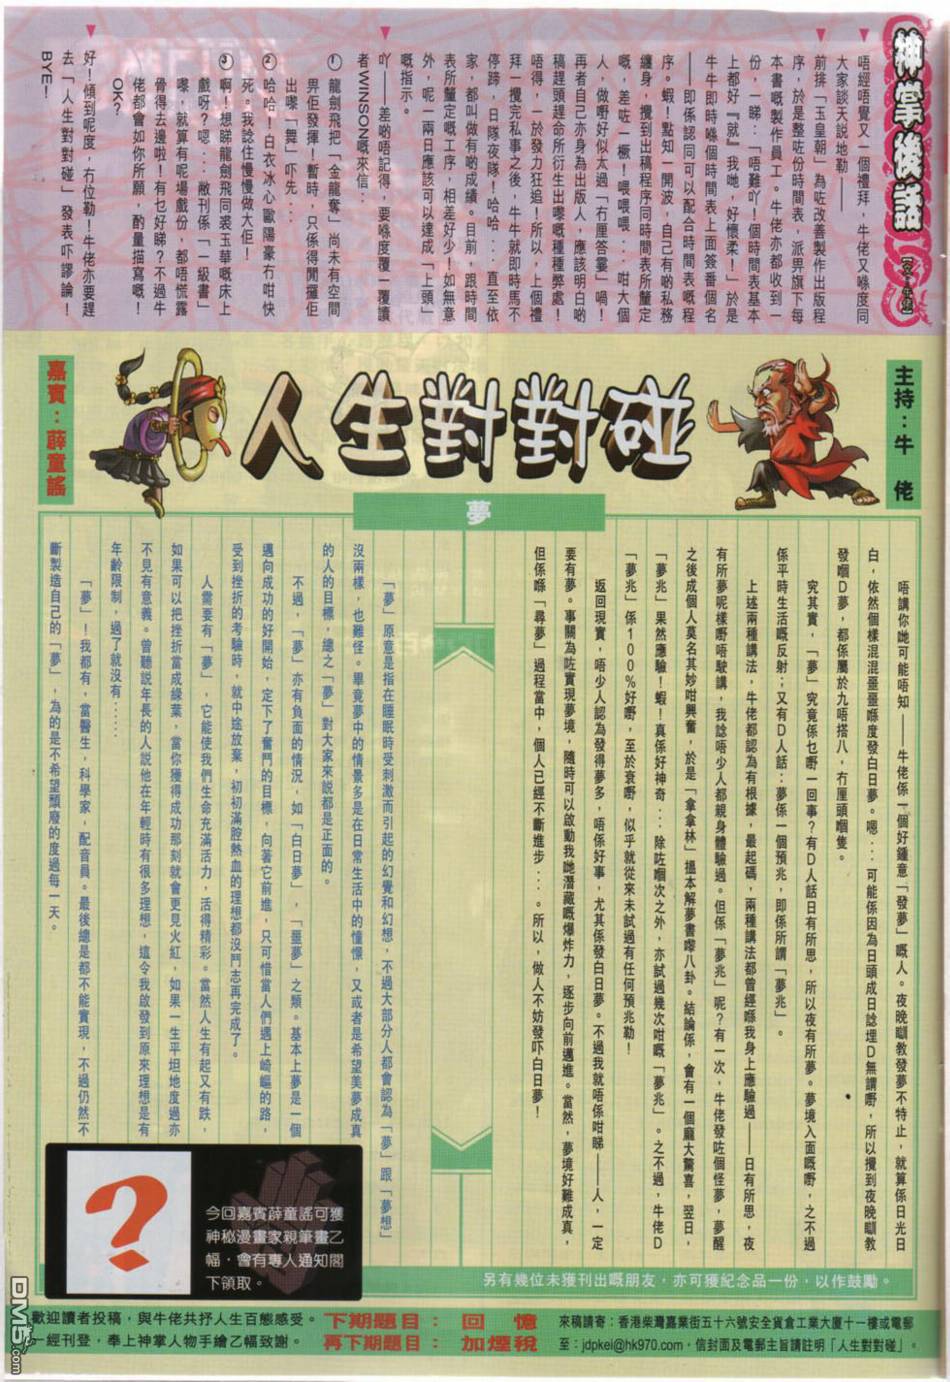 神掌後話
【文：牛佬】
唔經唔覺又一個禮拜，牛佬又喺度同
大家談天說地勒——
前排「玉皇朝」為咗改善製作出版程
序，於是整咗份時間表，派畀旗下每
本書嘅製作員工。牛佬亦都收到一
份，一睇：「唔難吖！個時間表基本
上都好『就』我哋，好懷柔！」於是
牛牛即時喺個時間表上面簽番個名
——即係認同可以配合時間表嘅程
序。蝦！點知一開波，自己有啲私務
纏身，攪到出稿程序同時間表所釐定
嘅，差咗一橛！喂喂喂：：咁大個
人，做嘢好似太過「冇厘答霎」喎！
再者自己亦身為出版人，應該明白啲
稿趕頭趕命所衍生出嚟嘅種種弊處！
唔得，一於發力狂追！所以，上個禮
拜一攪完私事之後，牛牛就即時馬不
停蹄，日隊夜隊！哈哈：：直至依
家，都叫做有啲成績。目前，跟時間
表所釐定嘅工序，相差好少！如無意
外，呢一兩日應該可以達成「上頭」
嘅指示。
吖——差啲唔記得，要喺度覆一覆讀
者WINSON嘅來信：
①龍劍飛把「金龍奪」尚未有空間
畀佢發揮！暫時，只係得閒攞佢
出嚟「舞」吓先：：
②哈哈！白衣冰心歐陽豪冇咁快
死。我諗住慢慢做大佢！
③啊！想睇龍劍飛同裘玉華嘅床上
戲呀？嗯：：敝刊係「一級書」
嚟，就算有呢場戲份，都唔慌露
骨得去邊啦！有乜好睇？不過牛
佬都會如你所願，酌量描寫嘅！
OK?
好！傾到呢度，冇位勒！牛佬亦要趕
去「人生對對碰」發表吓謬論！
BYE!
主持：牛佬
人生對對碰
嘉賓：薛童謠
夢
唔講你哋可能唔知——牛佬係一個好鍾意「發夢」嘅人。夜晚瞓教發夢不特止，就算係日光日
白，依然個樣混混噩噩喺度發白日夢。嗯：：可能係因為日頭成日諗埋D無謂嘢，所以攪到夜晚瞓教
發嗰D夢，都係屬於九唔搭八，冇厘頭嗰隻。
究其實，「夢」究竟係乜嘢一回事？有D人話日有所思，所以夜有所夢。夢境入面嘅嘢，之不過
係平時生活嘅反射；又有D人話：夢係一個預兆，即係所謂「夢兆」。
上述兩種講法，牛佬都認為有根據，最起碼，兩種講法都曾經喺我身上應驗過——日有所思，夜
有所夢呢樣嘢唔駛講，我諗唔少人都親身體驗過。但係「夢兆」呢？有一次，牛佬發咗個怪夢，夢醒
之後成個人莫名其妙咁興奮，於是「拿拿林」搵本解夢書嚟八卦。結論係，會有一個龐大驚喜，翌日，
「夢兆」果然應驗！蝦！真係好神奇：：除咗嗰次之外，亦試過幾次咁嘅「夢兆」。之不過，牛佬D
「夢兆」係100%好嘢，至於衰嘢，似乎就從來未試過有任何預兆勒！
返回現實，唔少人認為發得夢多，唔係好事，尤其係發白日夢。不過我就唔係咁睇——人，一定
要有夢。事關為咗實現夢境，隨時可以啟動我哋潛藏嘅爆炸力，逐步向前邁進。當然，夢境好難成真，
但係喺「尋夢」過程當中，個人已經不斷進步：：。所以，做人不妨發吓白日夢！
「夢」原意是指在睡眠時受刺激而引起的幻覺和幻想，不過大部分人都會認為「夢」跟「夢想」
沒兩樣，也難怪。畢竟夢中的情景多是在日常生活中的憧憬，又或者是希望美夢成真
的人的目標，總之「夢」對大家來說都是正面的。
不過，「夢」亦有負面的情況，如「白日夢」，「噩夢」之類。基本上夢是一個
邁向成功的好開始，定下了奮鬥的目標，向著它前進，只可惜當人們遇上崎嶇的路，
受到挫折的考驗時，就中途放棄，初初滿腔熱血的理想都沒鬥志再完成了。
人需要有「夢」，它能使我們生命充滿活力，活得精彩。當然人生有起又有跌，
如果可以把挫折當成綠葉，當你獲得成功那刻就會更見火紅，如果一生平坦地度過亦
不見有意義。曾聽說年長的人說他在年輕時有很多理想，這令我啟發到原來理想是有
年齡限制，過了就沒有：：：
「夢」！我都有，當醫生，科學家，配音員。最後總是都不能實現，不過仍然不
斷製造自己的「夢」，為的是不希望頹廢的度過每一天。
?
今回嘉賓薛童謠可獲
神秘漫畫家親筆畫乙
幅，會有專人通知閣
下領取。
另有幾位未獲刊出嘅朋友，亦可獲紀念品一份，以作鼓勵。
歡迎讀者投稿，與牛佬共抒人生百態感受。
一經刊登，奉上神掌人物手繪乙幅致謝。
下期題目：回憶
再下期題目：加煙稅
來稿請寄：香港柴灣嘉業街五十六號安全貨倉工業大廈十一樓或電郵
至：jdpkei@hk970.com，信封面及電郵主旨請註明「人生對對碰」。
DM5.com